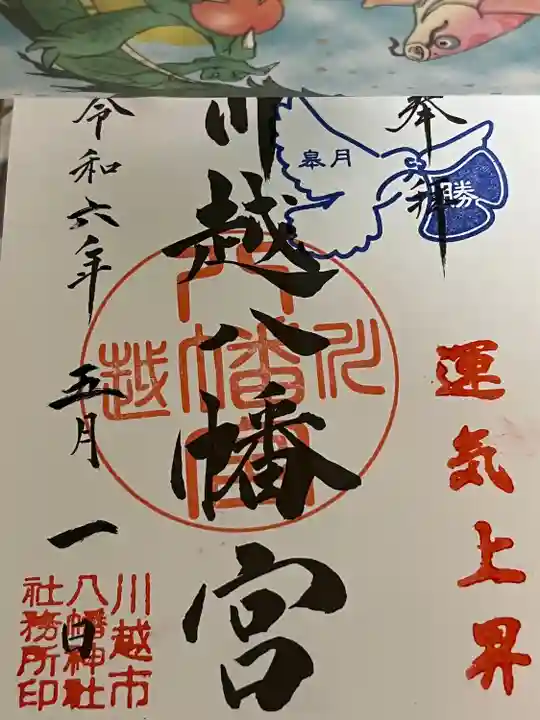 奉拝
皐月
勝
運気上昇
川越八幡宮
川越八幡宮
令和六年五月一日
川越市
八幡神社
社務所印